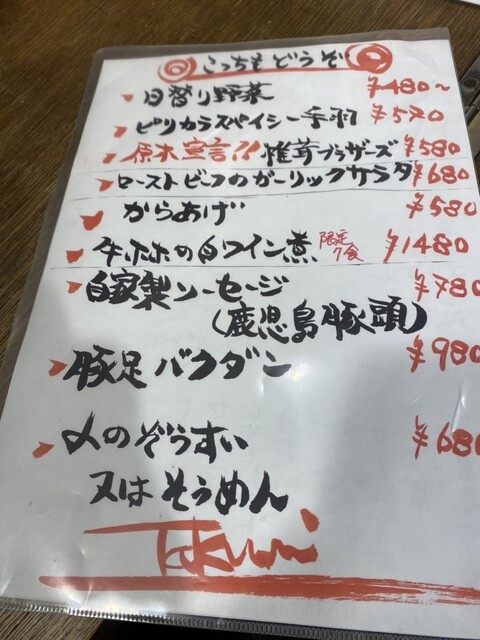 こっちもどうぞ
日替り野菜 ¥480~
ピリカラスパイシー手羽 ¥520
原木宣言!! 椎茸ブラザーズ ¥580
ローストビーフのガーリックサラダ ¥680
からあげ ¥580
牛ホホの白ワイン煮 限定7食 ¥1480
自家製ソーセージ ¥780
(鹿児島豚頭)
豚足バクダン ¥980
〆のぞうすい ¥680
又はそうめん
Takumi